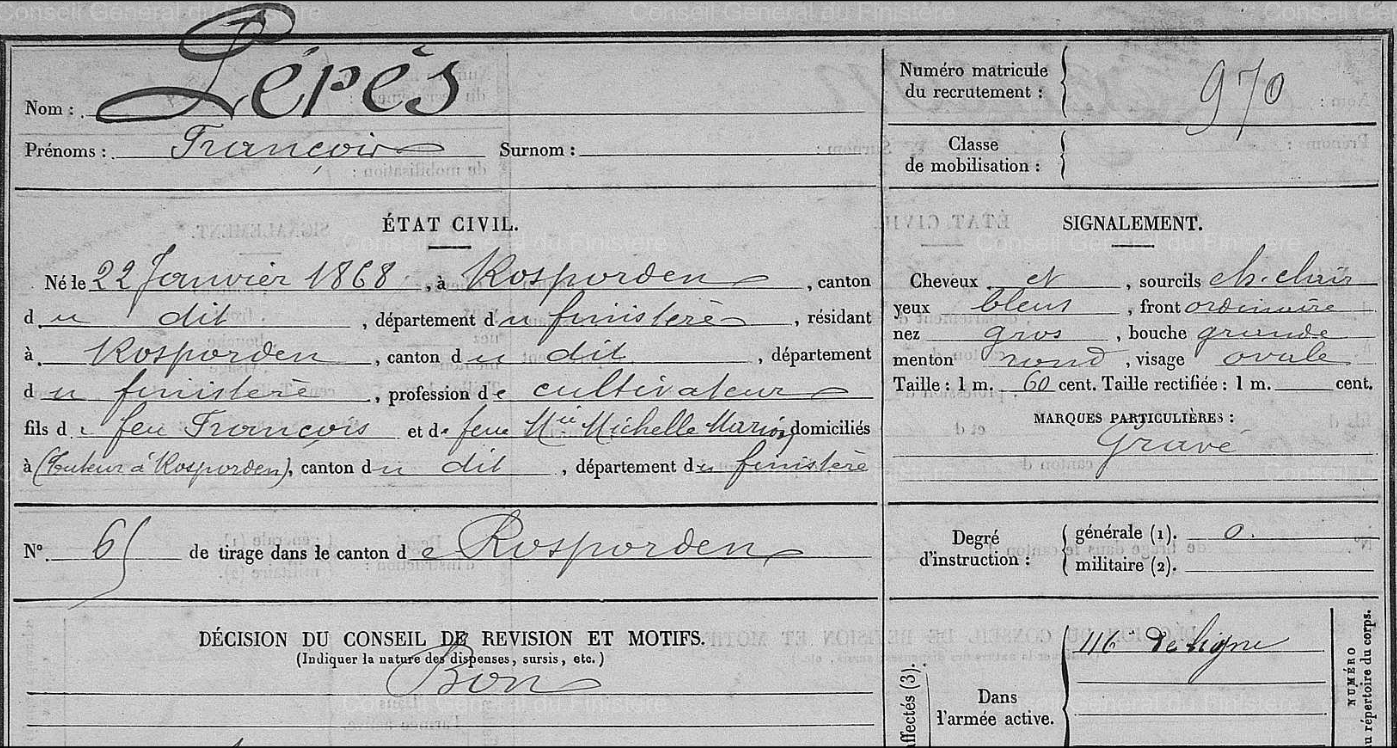 Conseil Général du Finistère
Nom : Pérès
Prénoms : François Surnom :
Numéro matricule du recrutement : 970
Classe de mobilisation :
ÉTAT CIVIL.
Né le 22 Janvier 1868, à Rosporden, canton
du dit, département du finistère, résidant
à Rosporden, canton du dit, département
du finistère, profession de cultivateur
fils de feu François et de feue Mie Michelle Marion domiciliés
à (Tuteur à Rosporden), canton du dit, département du finistère
SIGNALEMENT.
Cheveux et, sourcils ch. clair
yeux bleus, front ordinaire
nez gros, bouche grande
menton rond, visage ovale
Taille : 1 m. 60 cent. Taille rectifiée : 1 m. cent.
MARQUES PARTICULIÈRES :
Gravé
N° 65 de tirage dans le canton de Rosporden
Degré d'instruction :
générale (1). 0.
militaire (2).
DÉCISION DU CONSEIL DE REVISION ET MOTIFS.
(Indiquer la nature des dispenses, sursis, etc.)
Bon
affectés (3).
Dans l'armée active.
116e De ligne
NUMÉRO
au répertoire du corps.